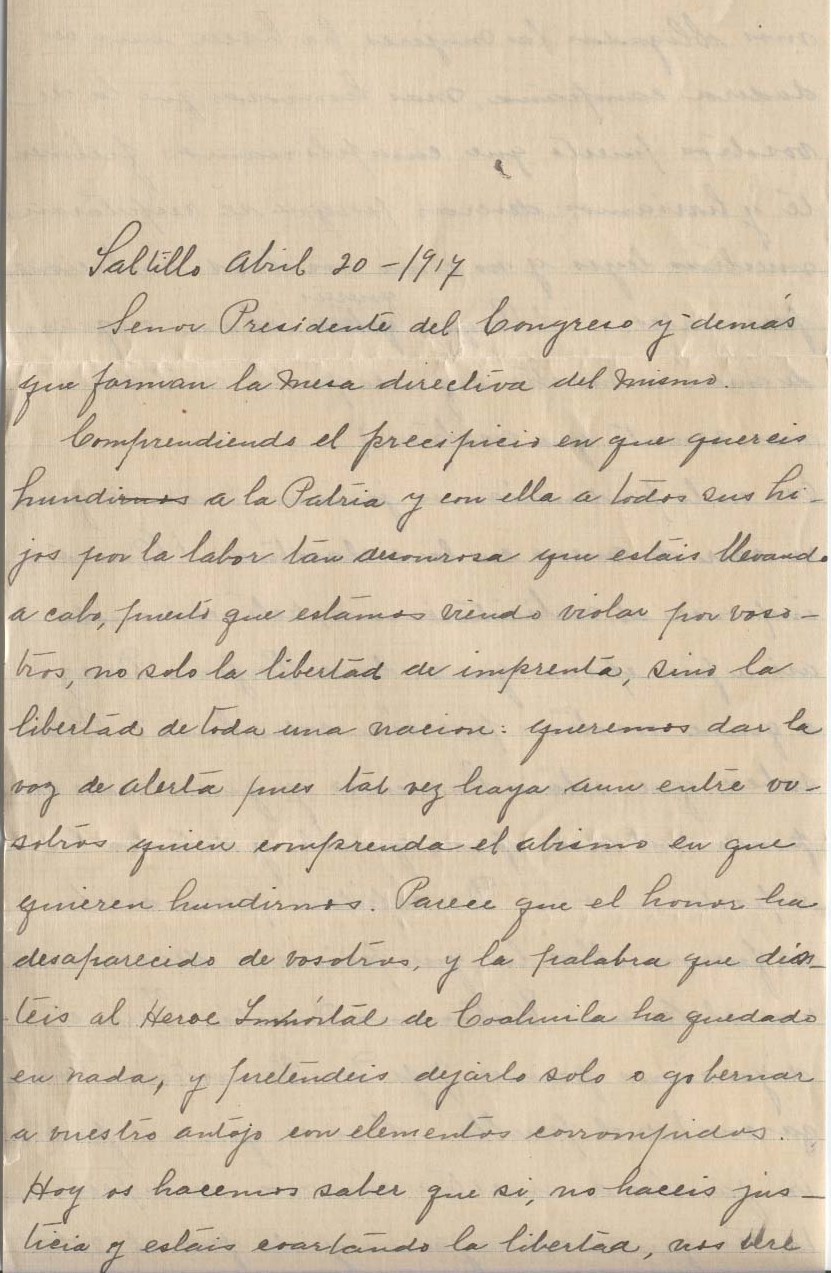 Saltillo Abril 20 - 1917
Senor Presidente del Congreso y demás
que forman la Mesa directiva del mismo.
Comprendiendo el precipicio en que quereis
hundirnos a la Patria y con ella a todos sus hi-
jos por la labor tan desonrosa que estáis llevando
a cabo, puesto que estamos viendo violar por voso-
tros, no solo la libertad de imprenta, sino la
libertad de toda una nacion: queremos dar la
voz de alerta pues tal vez haya aun entre vo-
sotros quien comprenda el abismo en que
quieren hundirnos. Parece que el honor ha
desaparecido de vosotros, y la palabra que dis-
teis al Heroe Inmórtal de Coahuila ha quedado
en nada, y pretendeis dejarlo solo o gobernar
a vuestro antojo con elementos corrompidos.
Hoy os hacemos saber que si, no haceis jus-
ticia y estáis coartando la libertad, nos vere